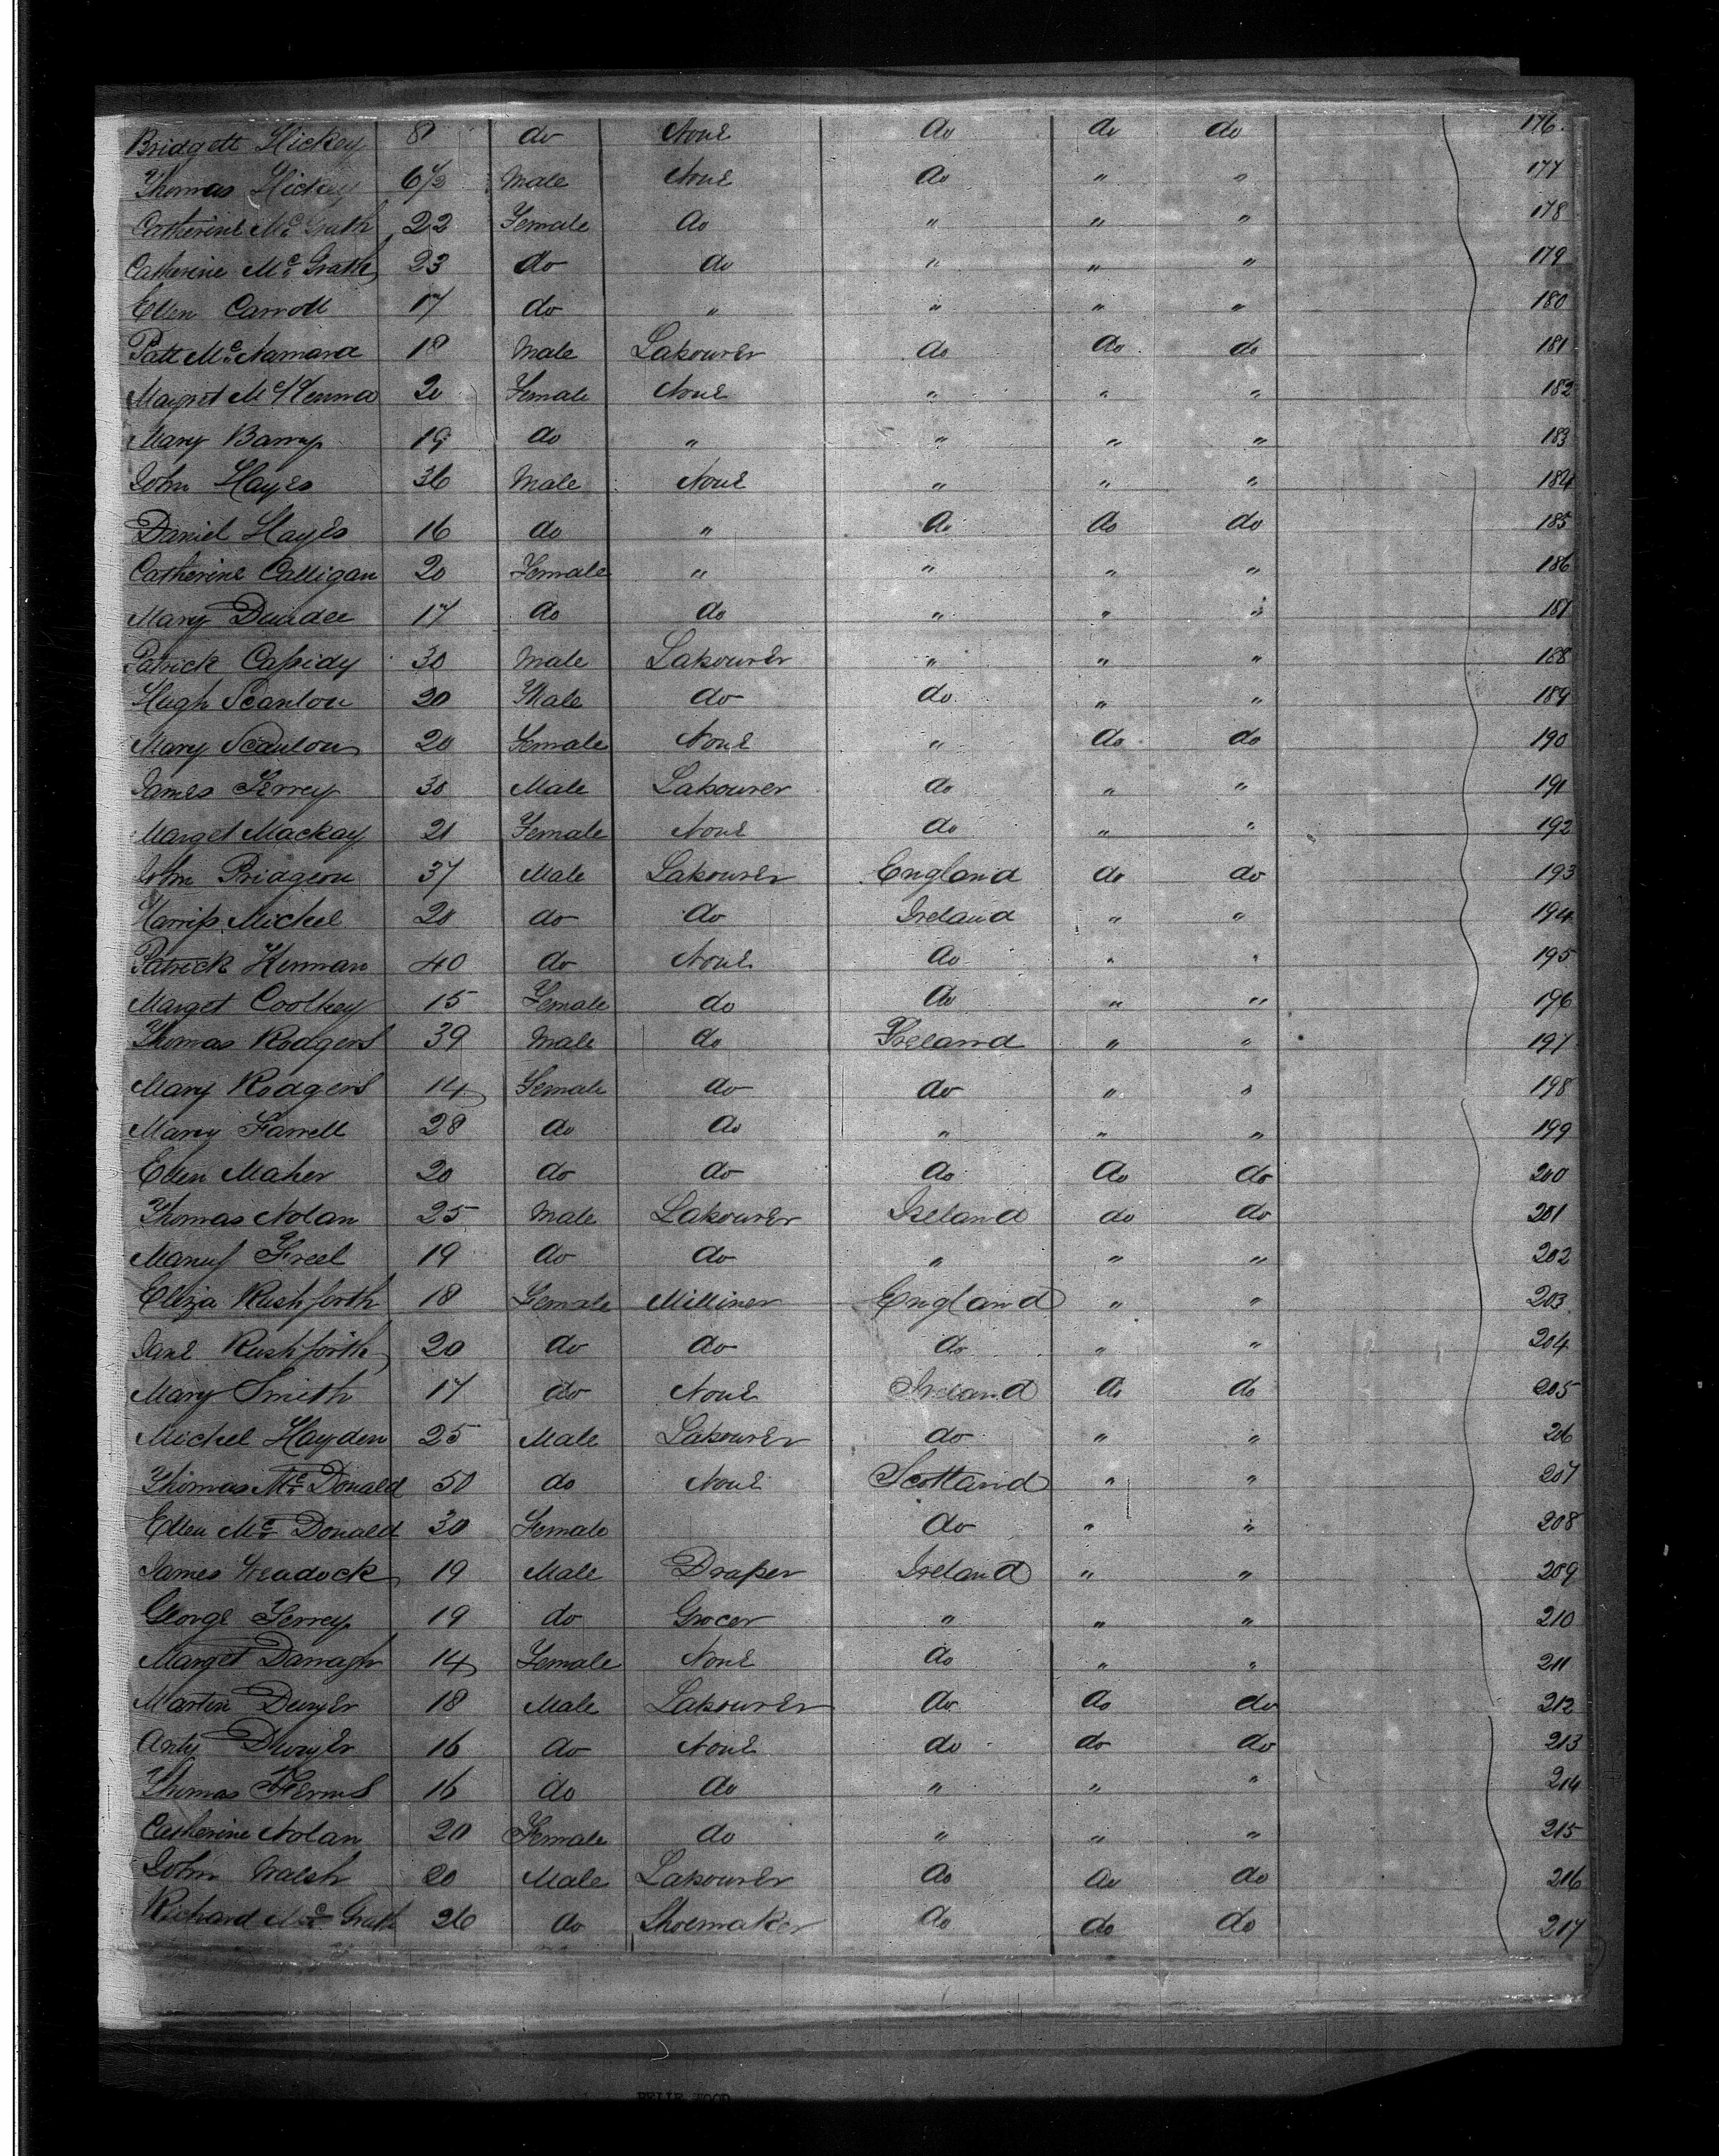 Bridgett Hickey 8 do None do do do 176.
Thomas Hickey 6½ Male None do " " 177
Catherine McGrath 22 Female do " " " 178
Catherine McGrath 23 do do " " " 179
Ellen Carroll 17 do " " " " 180
Patt McNamara 18 Male Labourer do do do 181
Margret McKenna 20 Female None " " " 182
Mary Barry 19 do " " " " 183
John Hayes 36 Male None " " " 184
Daniel Hayes 16 do " do do do 185
Catherine Calligan 20 Female " " " " 186
Mary Dundee 17 do do " " " 187
Patrick Cassidy 30 Male Labourer " " " 188
Hugh Scanlon 20 Male do do " " 189
Mary Scanlon 20 Female None " do do 190
James Ferrey 30 Male Labourer do " " 191
Marget Mackay 21 Female None do " " 192
John Pridgeon 37 Male Labourer England do do 193
Harriss Michel 20 do do Ireland " " 194
Patrick Kinnan 40 do None do " " 195
Marget Coolkey 15 Female do do " " 196
Thomas Rodgers 39 Male do Ireland " " 197
Mary Rodgers 14 Female do do " " 198
Mary Farrell 28 do do " " " 199
Ellen Maher 20 do do do do do 200
Thomas Nolan 25 Male Labourer Ireland do do 201
Manus Freel 19 do do " " " 202
Elliza Rushforth 18 Female Milliner England " " 203
Jane Rushforth 20 do do do " " 204
Mary Smith 17 do None Ireland do do 205
Michel Hayden 25 Male Labourer do " " 206
Thomas McDonald 50 do None Scotland " " 207
Ellen McDonald 30 Female do " " 208
James 19 Male Draper Ireland " " 209
George Ferrey 19 do Grocer " " " 210
Marget Darragh 14 Female None do " " 211
Martin Dwyer 18 Male Labourer do do do 212
Anty Dwyer 16 do None do do do 213
Thomas 16 do do " " " 214
Catherine Nolan 20 Female do " " " 215
John Walsh 20 Male Labourer do do do 216
Richard McGrath 26 do Shoemaker do do do 217